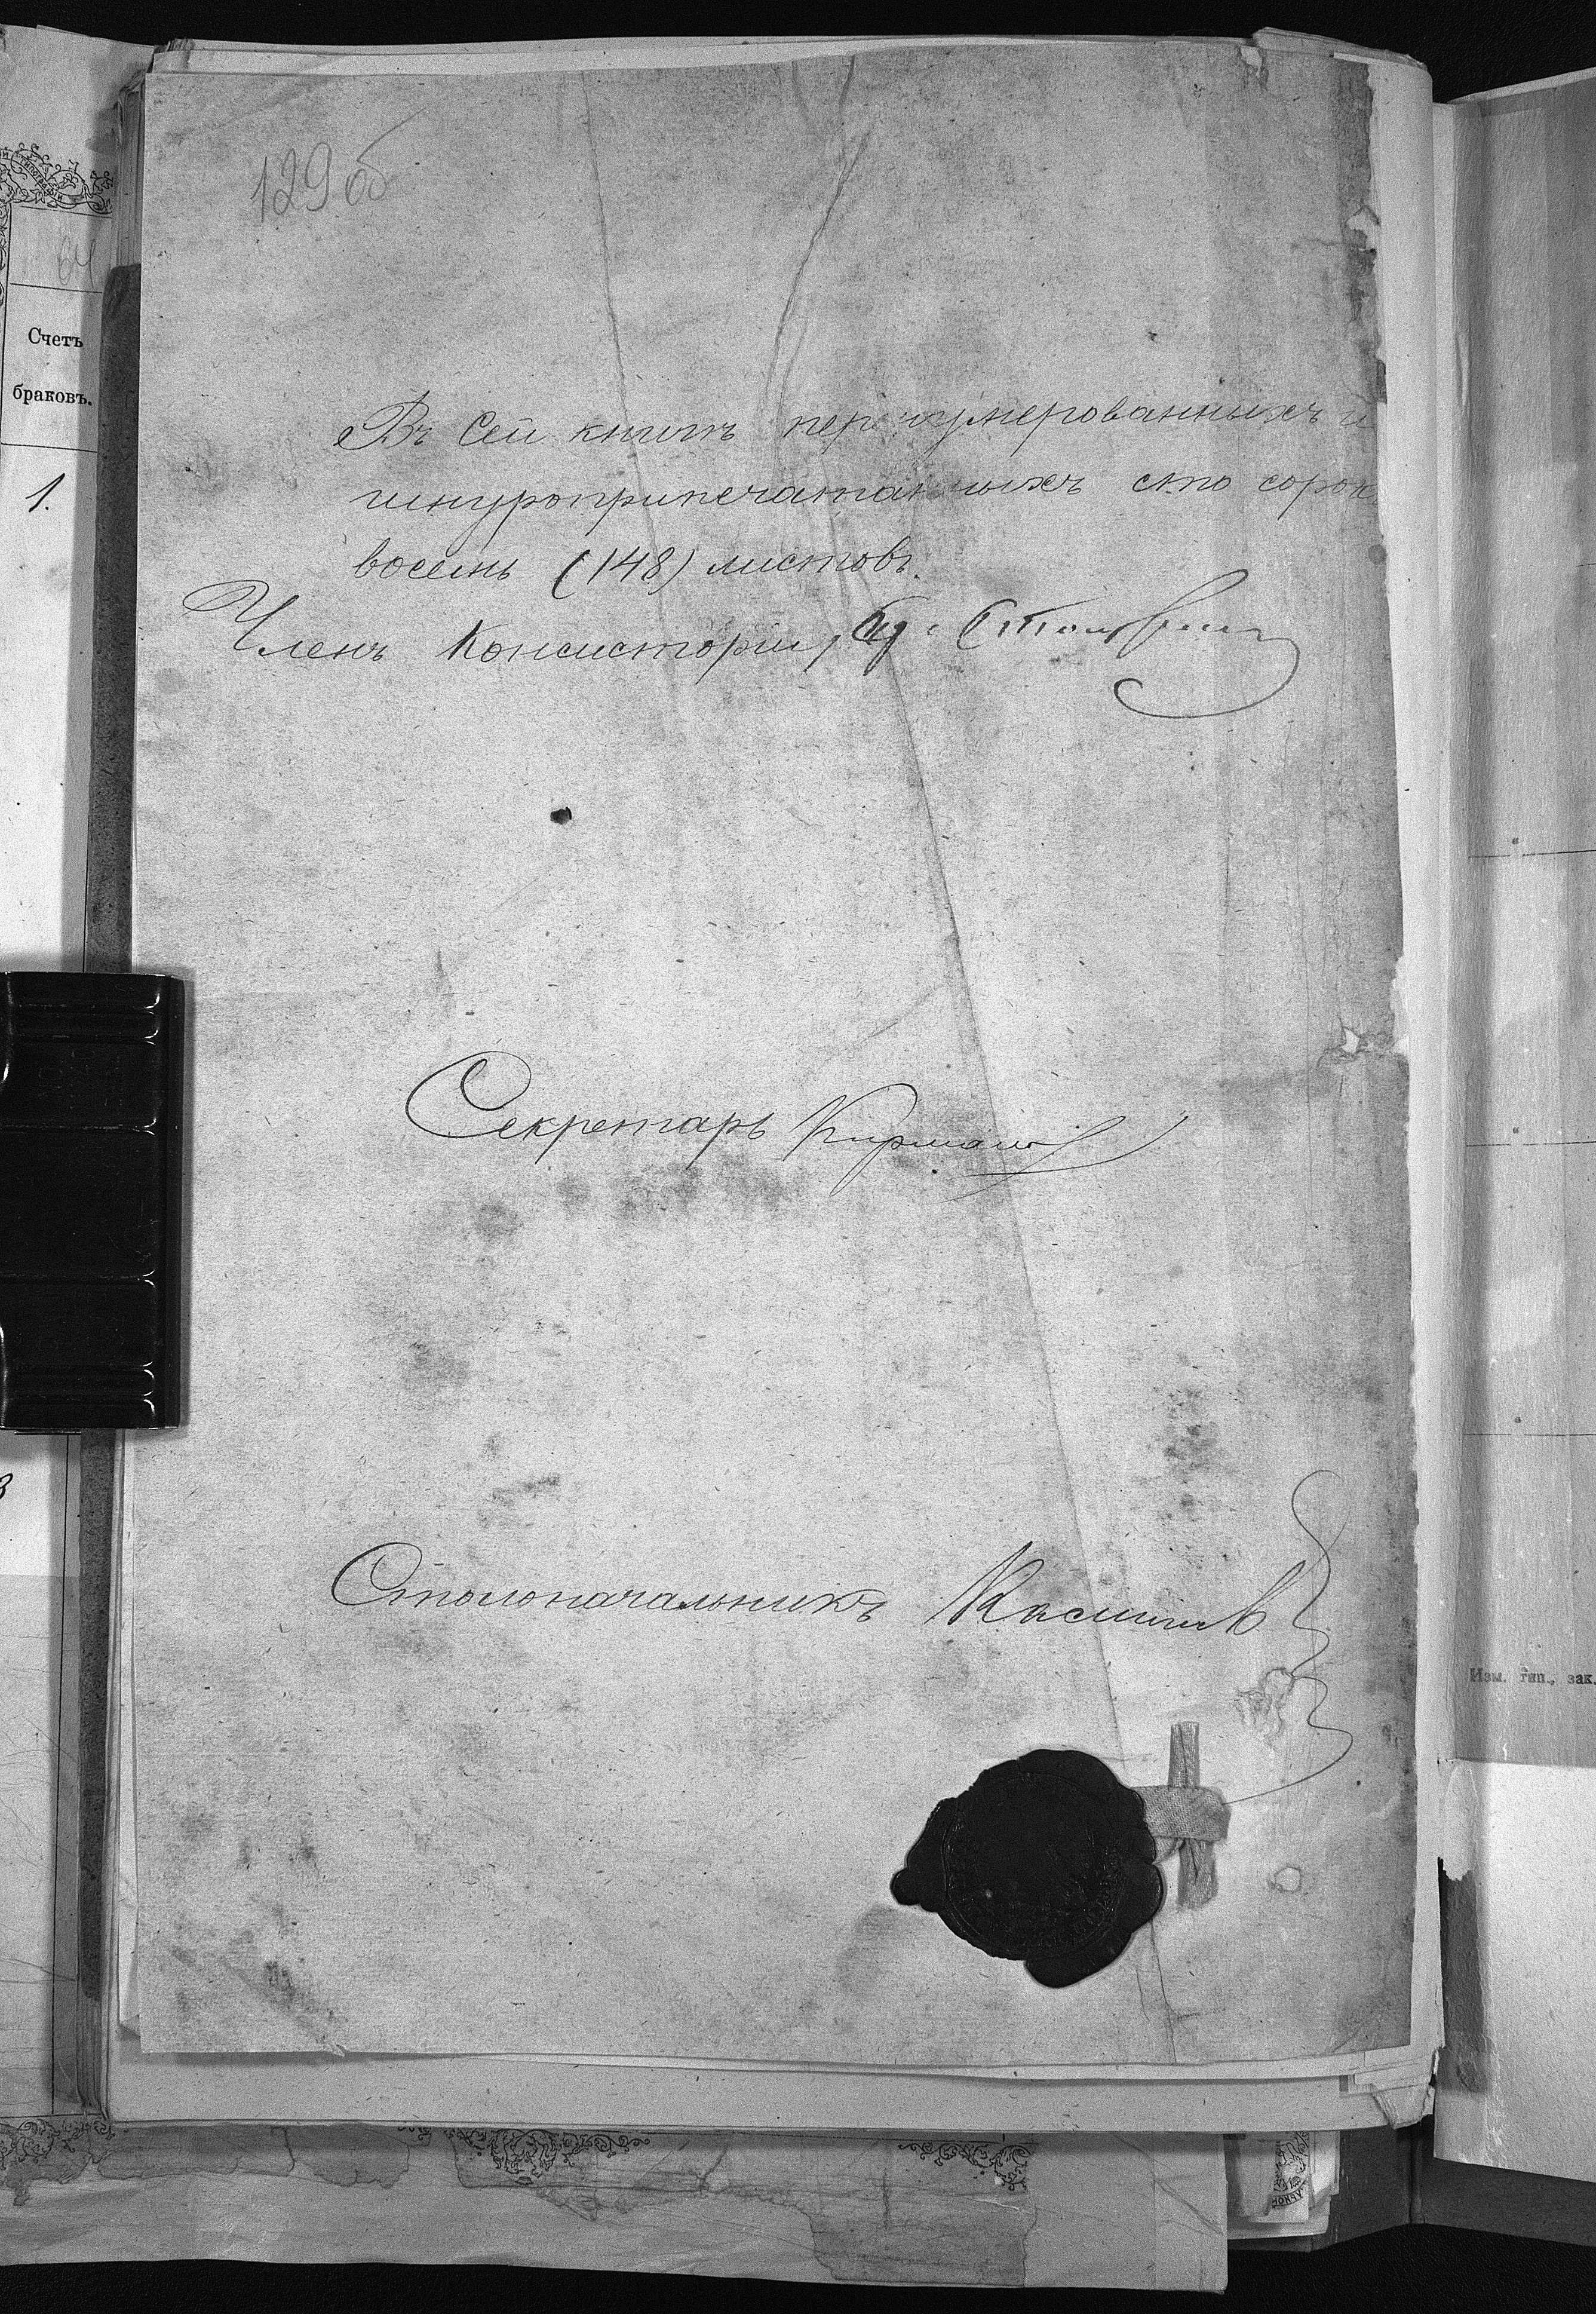 129 об
64
Счетъ
браковъ.
1.
Въ сей книгѣ перенумерованныхъ и
шнуроприпечатанныхъ сто сорок
восемь (148) листовъ.
Членъ Консисторіи,
Секретарь
Столоначальникъ
Изм. тип., зак.